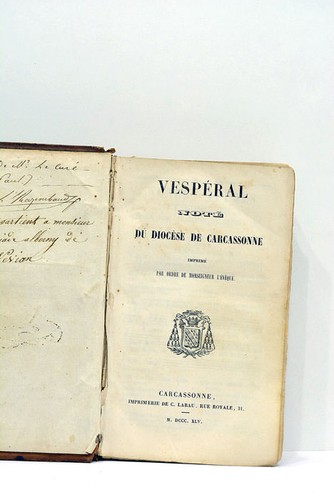 de Mr. le Curé
partient à monsieur
de
VESPÉRAL
NOTÉ
DU DIOCÈSE DE CARCASSONNE
IMPRIMÉ
PAR ORDRE DE MONSEIGNEUR L'ÉVÊQUE.
CARCASSONNE,
IMPRIMERIE DE C. LABAU, RUE ROYALE, 21.
M. DCCC. XLV.